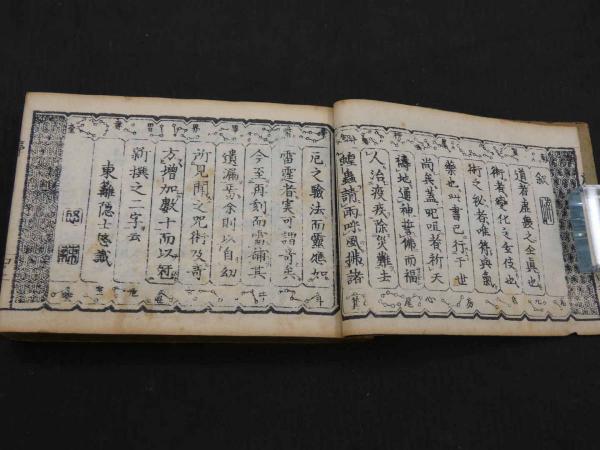 叙
道者虚無之至真也
術者變化之玄伎也
術之秘者唯符與氣
藥也此書已行于世
尚矣蓋呪咀者祈天
禱地通神誓佛而福
人治疫疾除災難士
蝗蟲請雨呼風攘諸
厄之驗法而靈應如
雷霆者実可謂奇矣
今至再刻而需補其
遺漏焉余則以自幼
所見聞之咒術及奇
方增加數十而以冠
新撰之二字云
東籬隠士悠識